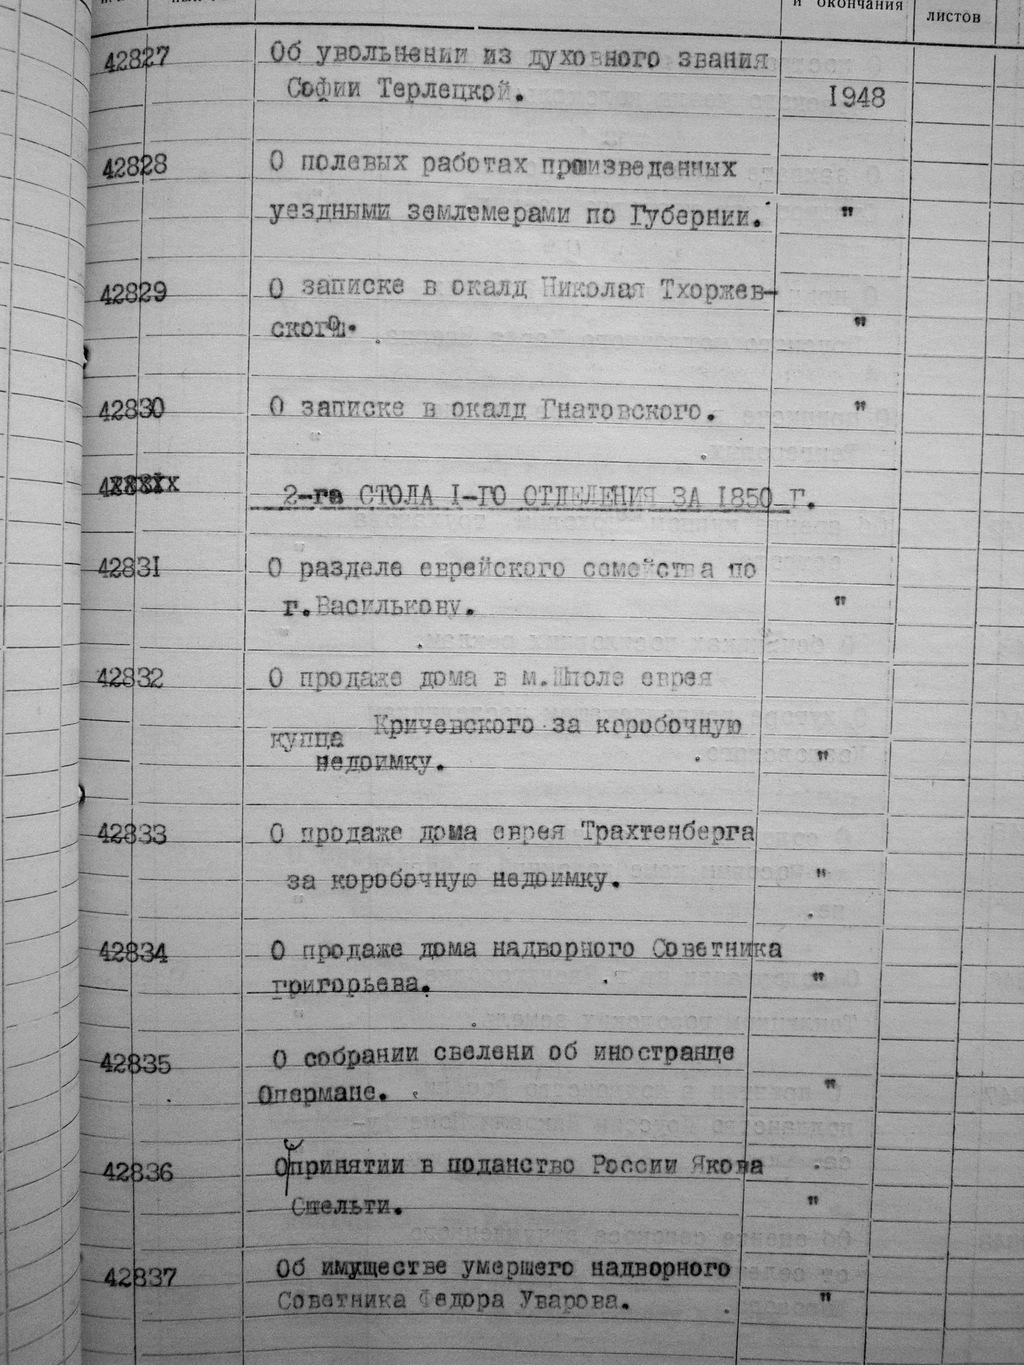 и окончания
листов
42827 Об увольнении из духовного звания
Софии Терлецкой. 1948
42828 О полевых работах произведенных
уездными землемерами по Губернии. "
42829 О записке в окалд Николая Тхоржев-
ского. "
42830 О записке в окалд Гнатовского. "
2-го СТОЛА I-ГО ОТДЕЛЕНИЯ ЗА 1850 Г.
42831 О разделе еврейского семейства по
г.Василькову. "
42832 О продаже дома в м.Шполе еврея
купца Кричевского за коробочную
недоимку. "
42833 О продаже дома еврея Трахтенберга
за коробочную недоимку. "
42834 О продаже дома надворного Советника
григорьева. "
42835 О собрании свелени об иностранце
Опермане. "
42836 Опринятии в поданство России Якова
Смельти. "
42837 Об имуществе умершего надворного
Советника Федора Уварова. "